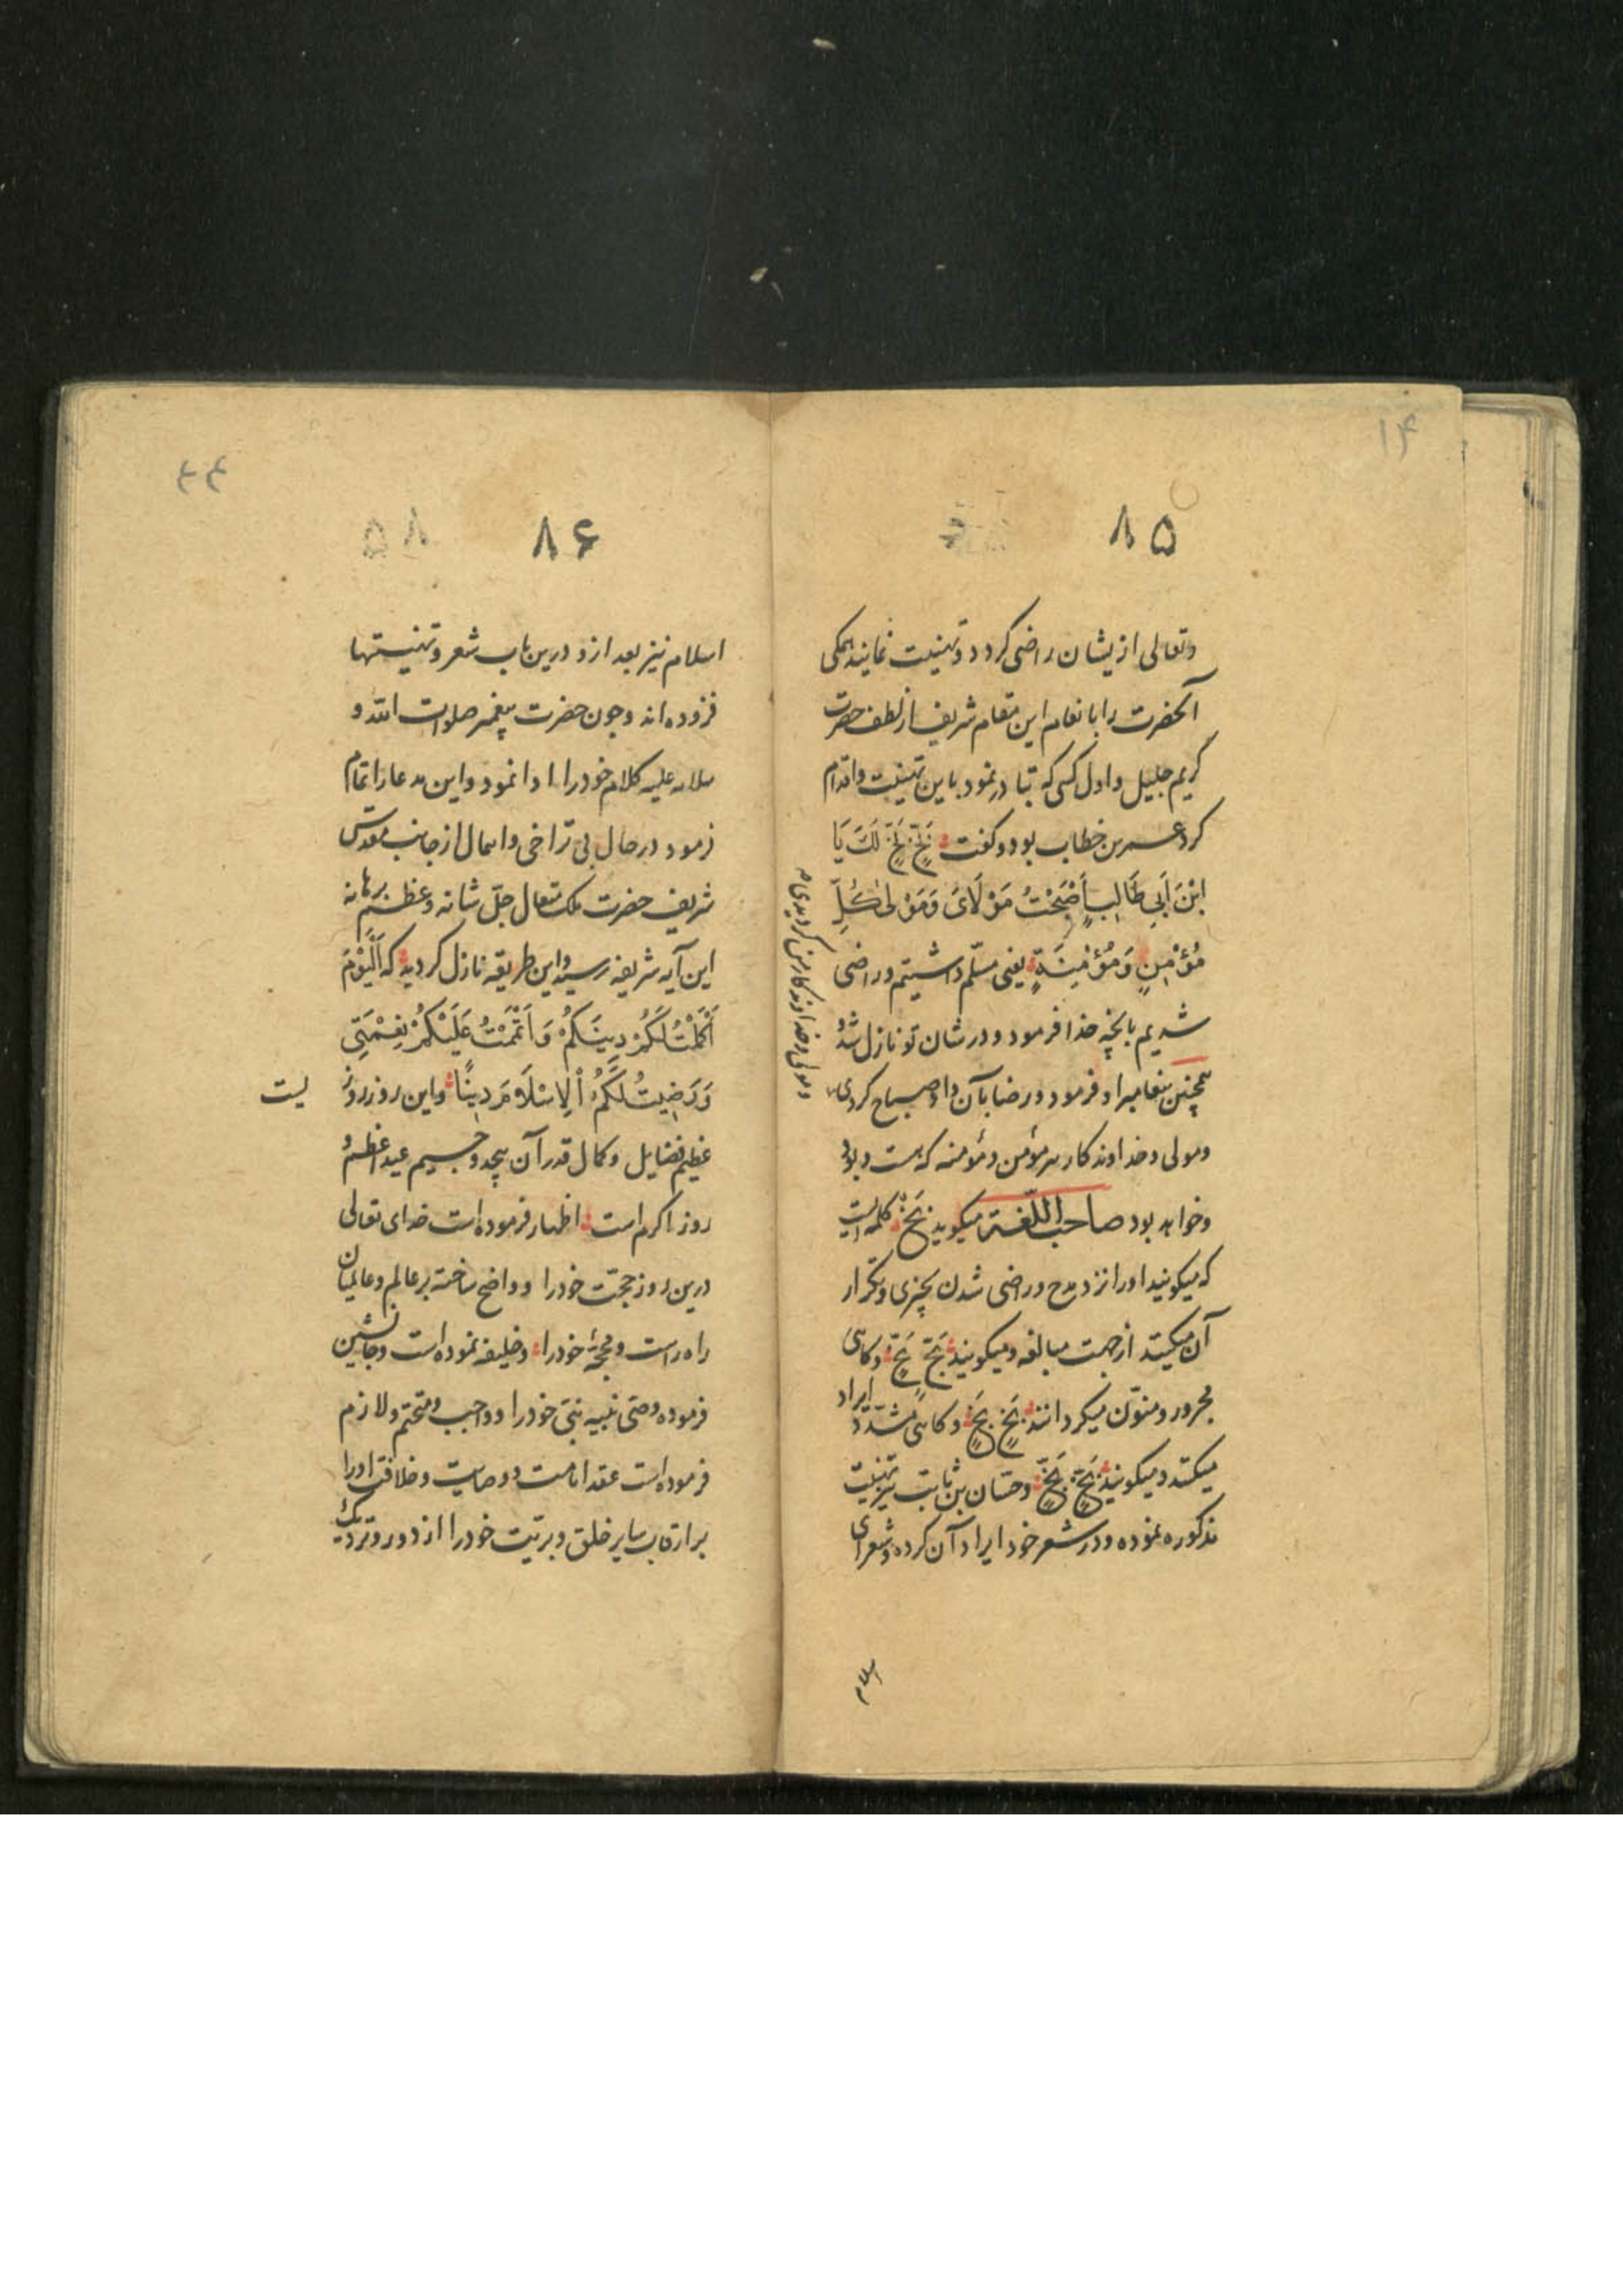 ۸۵
وتعالی ازیشان راضی کردد و تهنیت نمایند همکی
آنحضرت را بانعام این مقام شریف از لطف حضرت
کریم جلیل و اول کسی که تبادر نمود باین تهنیت و اقدام
کرد عمر بن خطاب بود و کفت بَخٍّ بَخٍّ لَكَ یَا
ابْنَ اَبِی طَالِبٍ اَصْبَحْتَ مَوْلَایَ وَمَوْلٰی كُلِّ
مُؤْمِنٍ وَمُؤْمِنَةٍ یعنی مسلّم داشتیم و راضی
شدیم بآنچه خدا فرمود و در شان تو نازل شد و
همچنین پیغامبر او فرمود و رضا بآن داد صباح کردی
ومولی وخداوندکار هر مؤمن و مؤمنه که هست و بود
وخواهد بود صاحب اللّغة میکوید بَخْ کلمه ایست
که میکویند او را نزد مدح و راضی شدن بچیزی و تکرار
آن میکنند از جهت مبالغه و میکویند بَخْ بَخْ و کاهی
مجرور و منوّن میکردانند بَخٍ بَخٍ و کاهی مشدّد ایراد
میکنند و میکویند بَخٍّ بَخٍّ و حسّان بن ثابت نیز تهنیت
مذکوره نموده و در شعر خود ایراد آن کرده و شعرای
اسلام
و مولی و خداوندکار من کردیدی
۸۶
اسلام نیز بعد ازو درین باب شعر و تهنیتها
فزوده اند وچون حضرت پیغمبر صلوات الله و
سلامه علیه کلام خود را ادا نمود واین مدعا را اتمام
فرمود در حال بی تراخی و امهال از جانب مقدّس
شریف حضرت ملک متعال جلّ شانه و عظم برهانه
این آیه شریفه رسید و این طریقه نازل کردید که اَلْیَوْمَ
اَكْمَلْتُ لَكُمْ دِینَكُمْ وَاَتْمَمْتُ عَلَیْكُمْ نِعْمَتِی
وَرَضِیتُ لَكُمُ الْاِسْلَامَ دِینًا واین روز روز
یست
عظیم فضایل و کمال قدر آن بیحد و جسیم عید اعظم و
روز اکرم است اظهار فرموده است خدای تعالی
درین روز حجّت خود را و واضح ساخته بر عالم و عالمیان
راه راست و محجّهٔ خود را و خلیفه نموده است و جانشین
فرموده وصّی نبیه نبیّ خود را و واجب و متحتم و لازم
فرموده است عقد امامت و وصایت و خلافت او را
بر ارقاب سایر خلق و بریّت خود را از دور و نزدیک